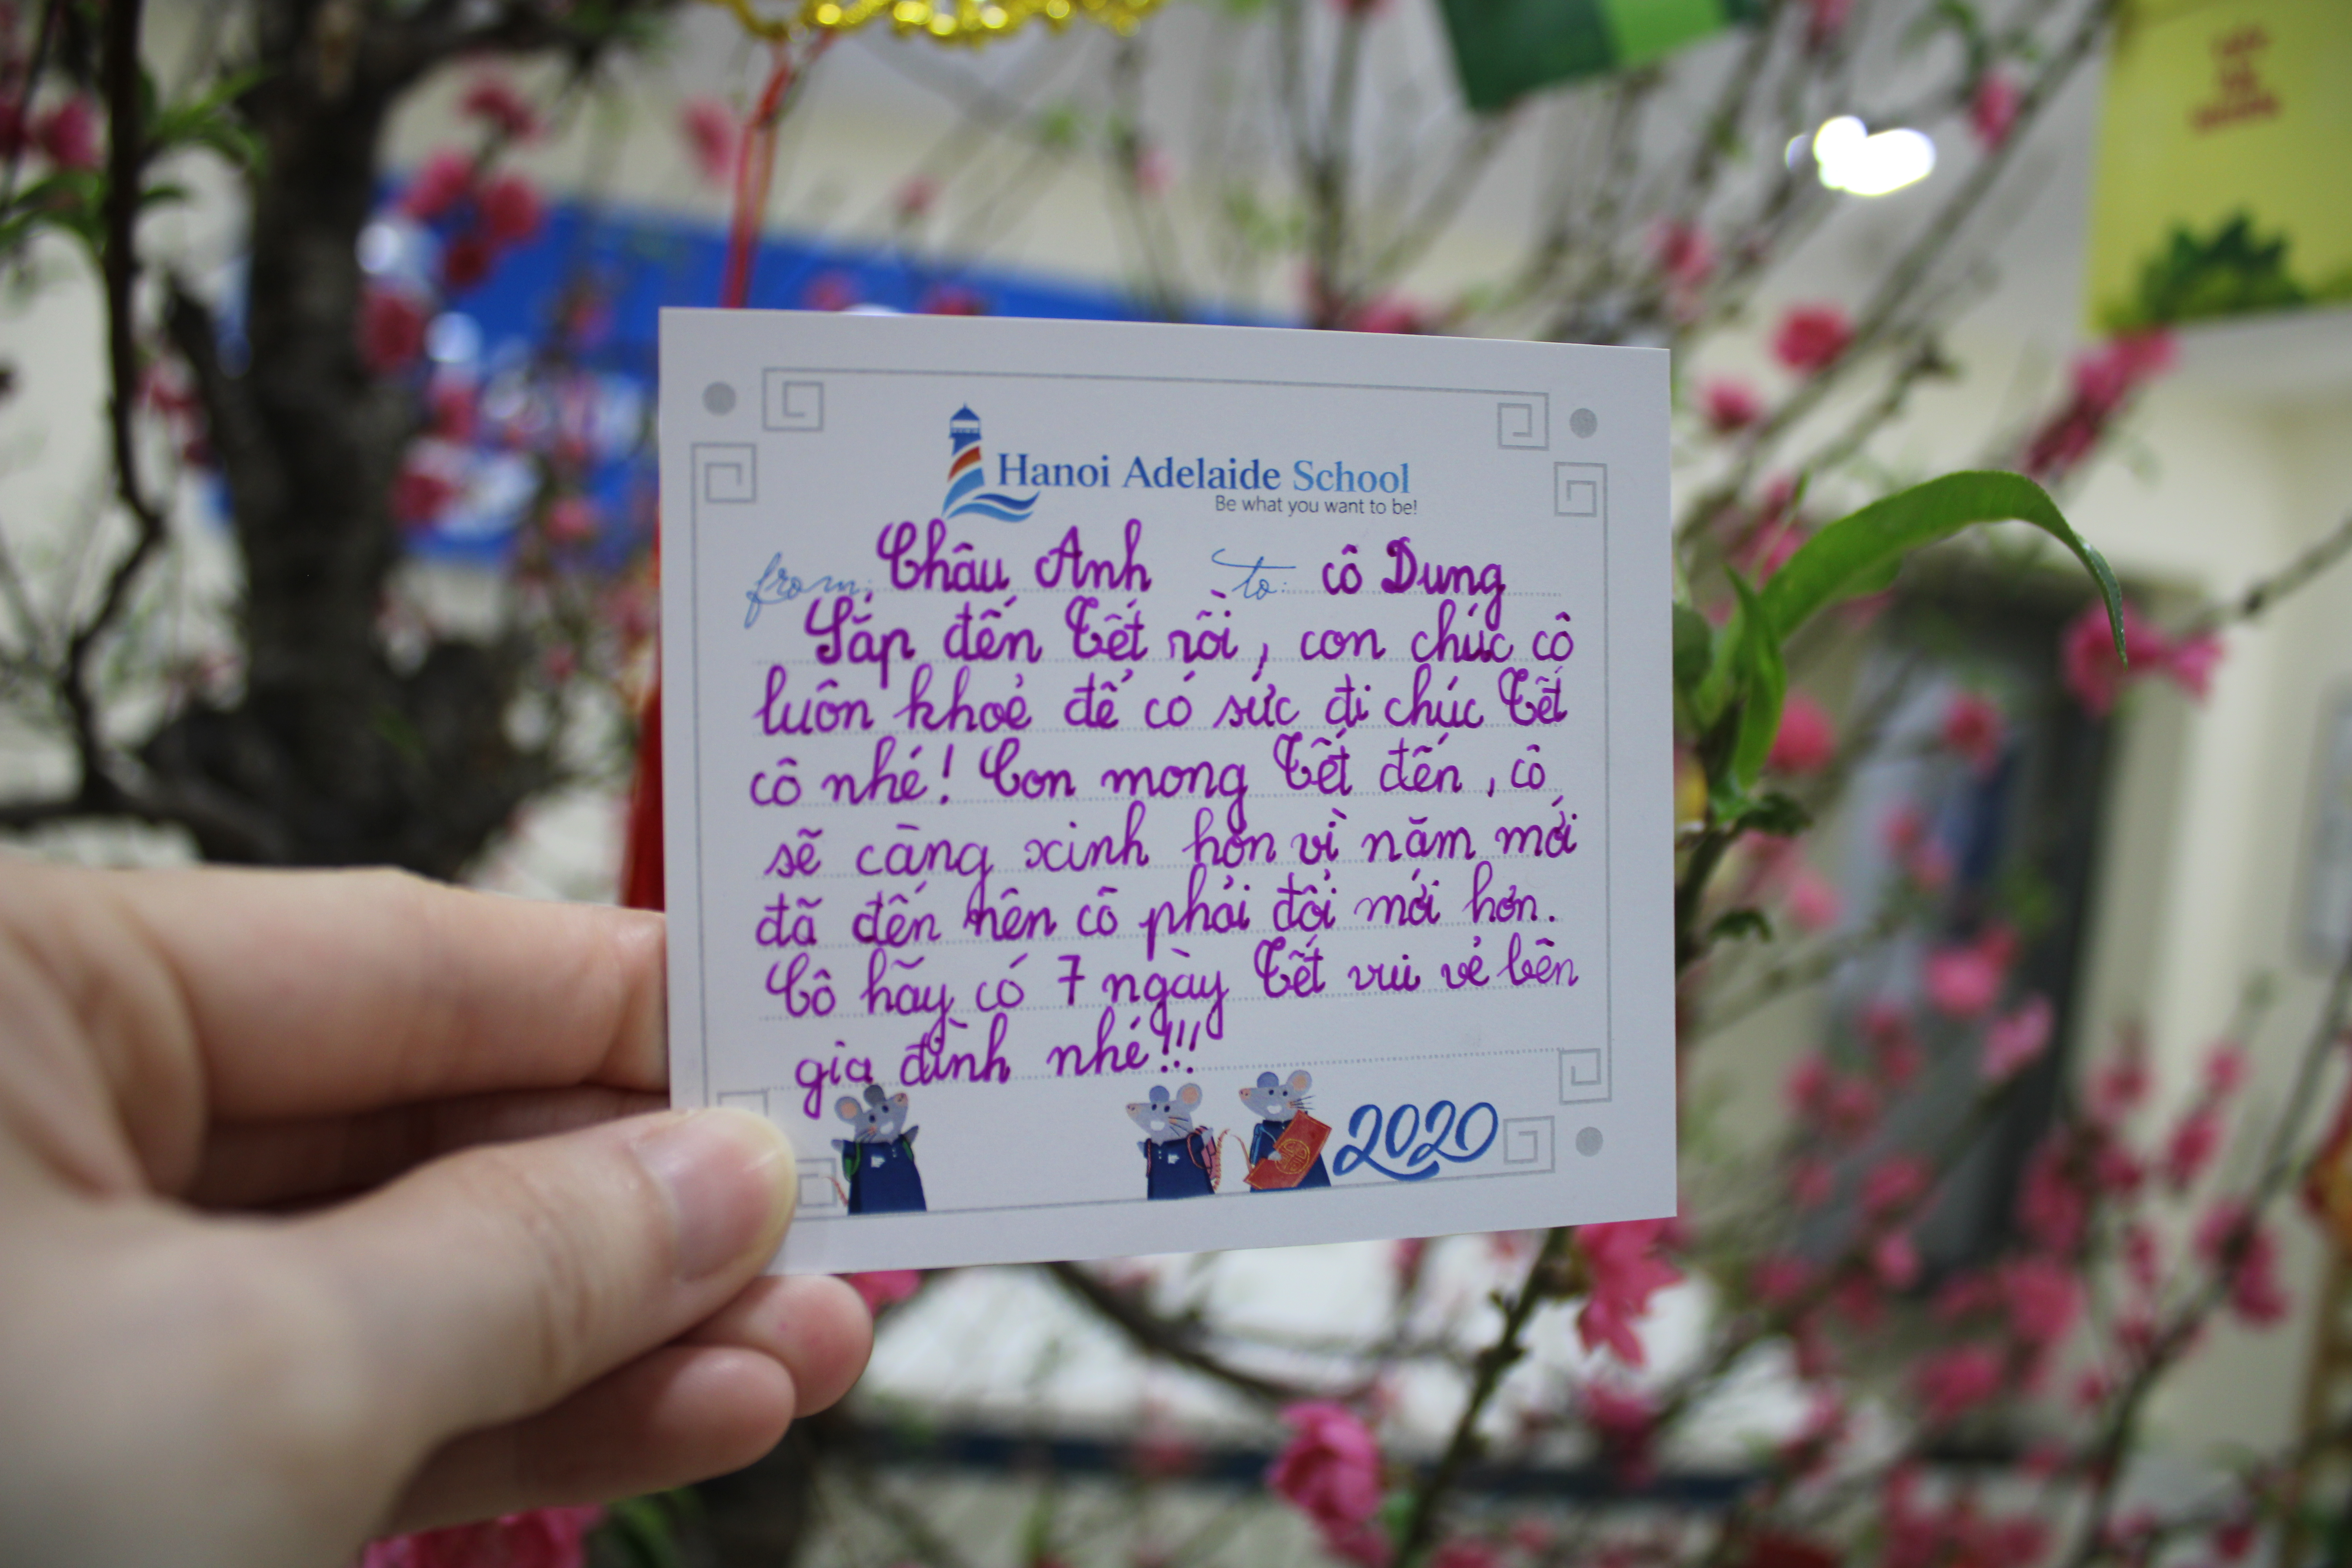 Hanoi Adelaide School
Be what you want to be!
from: Châu Anh to: cô Dung
Sắp đến Tết rồi, con chúc cô
luôn khoẻ để có sức đi chúc Tết
cô nhé! Con mong Tết đến, cô
sẽ càng xinh hơn vì năm mới
đã đến nên cô phải đổi mới hơn.
Cô hãy có 7 ngày Tết vui vẻ bên
gia đình nhé!!!
2020